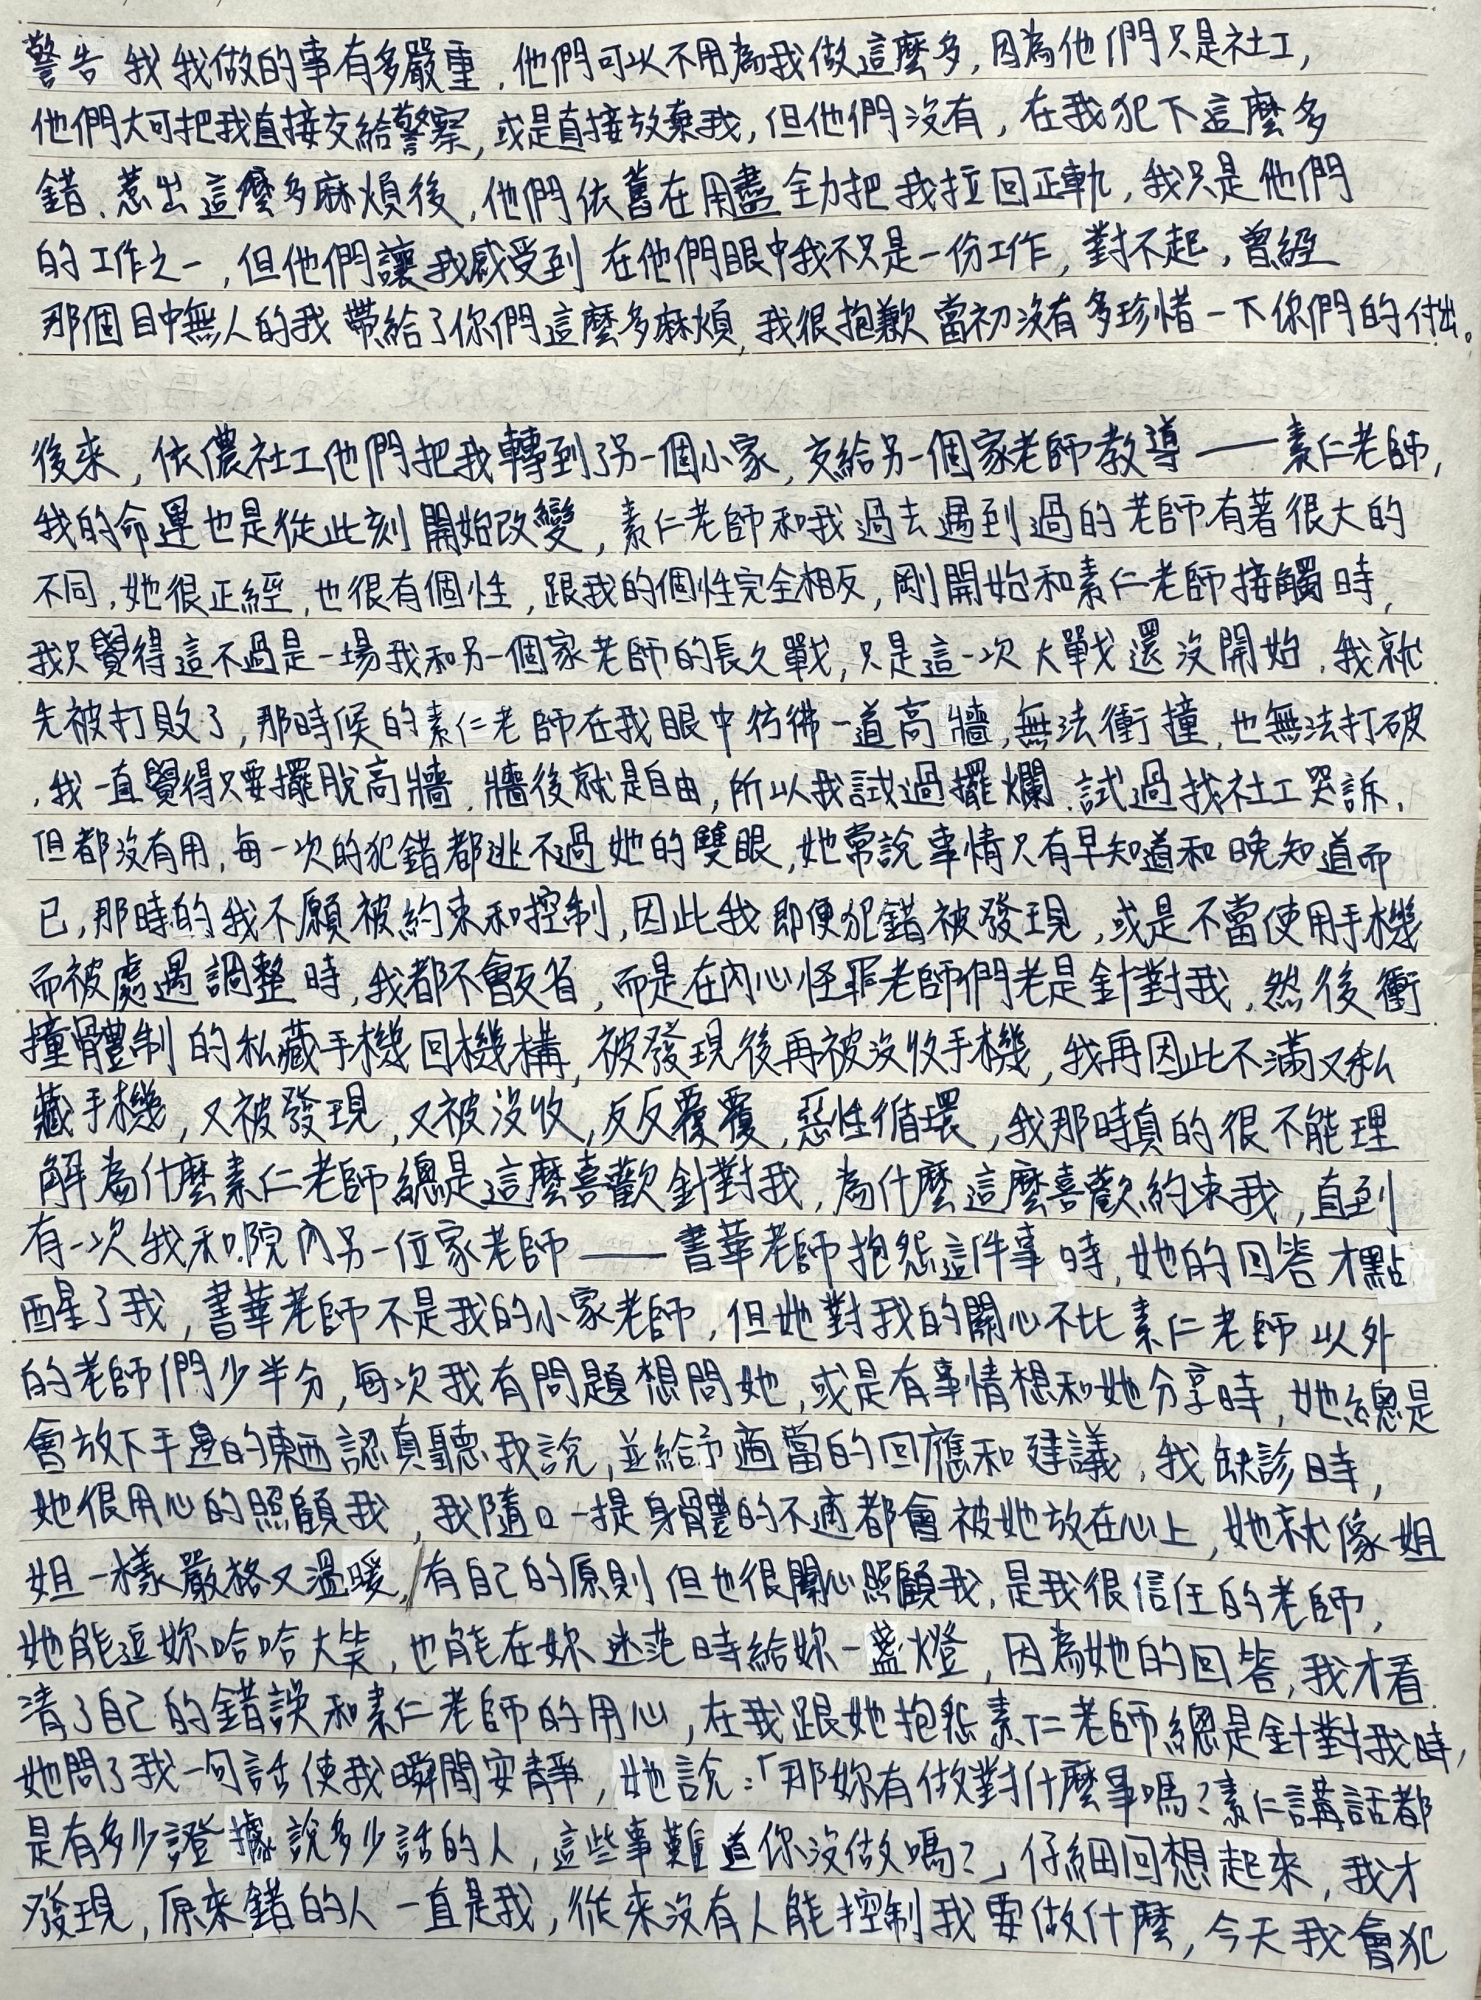 警告我我做的事有多嚴重，他們可以不用為我做這麼多，因為他們只是社工，
他們大可把我直接交給警察，或是直接放棄我，但他們沒有，在我犯下這麼多
錯、惹出這麼多麻煩後，他們依舊在用盡全力把我拉回正軌，我只是他們
的工作之一，但他們讓我感受到在他們眼中我不只是一份工作，對不起，曾經
那個目中無人的我帶給了你們這麼多麻煩，我很抱歉當初沒有多珍惜一下你們的付出。
後來，依儂社工他們把我轉到了另一個小家，交給另一個家老師教導——素仁老師，
我的命運也是從此刻開始改變，素仁老師和我過去遇到過的老師有著很大的
不同，她很正經，也很有個性，跟我的個性完全相反，剛開始和素仁老師接觸時，
我只覺得這不過是一場我和另一個家老師的長久戰，只是這一次大戰還沒開始，我就
先被打敗了，那時候的素仁老師在我眼中彷彿一道高牆，無法衝撞，也無法打破
，我一直覺得只要擺脫高牆，牆後就是自由，所以我試過擺爛、試過找社工哭訴，
但都沒有用，每一次的犯錯都逃不過她的雙眼，她常說事情只有早知道和晚知道而
已，那時的我不願被約束和控制，因此我即便犯錯被發現，或是不當使用手機
而被處遇調整時，我都不會反省，而是在內心怪罪老師們老是針對我，然後衝
撞體制的私藏手機回機構，被發現後再被沒收手機，我再因此不滿又私
藏手機，又被發現，又被沒收，反反覆覆，惡性循環，我那時真的很不能理
解為什麼素仁老師總是這麼喜歡針對我，為什麼這麼喜歡約束我，直到
有一次我和院內另一位家老師——書華老師抱怨這件事時，她的回答才點
醒了我，書華老師不是我的小家老師，但她對我的關心不比素仁老師以外
的老師們少半分，每次我有問題想問她，或是有事情想和她分享時，她總是
會放下手邊的東西認真聽我說，並給予適當的回應和建議，我缺診時，
她很用心的照顧我，我隨口一提身體的不適都會被她放在心上，她就像姐
姐一樣嚴格又溫暖，有自己的原則但也很關心照顧我，是我很信任的老師，
她能逗妳哈哈大笑，也能在妳迷茫時給妳一盞燈，因為她的回答，我才看
清了自己的錯誤和素仁老師的用心，在我跟她抱怨素仁老師總是針對我時，
她問了我一句話使我瞬間安靜，她說：「那妳有做對什麼事嗎？素仁講話都
是有多少證據說多少話的人，這些事難道你沒做嗎？」仔細回想起來，我才
發現，原來錯的人一直是我，從來沒有人能控制我要做什麼，今天我會犯